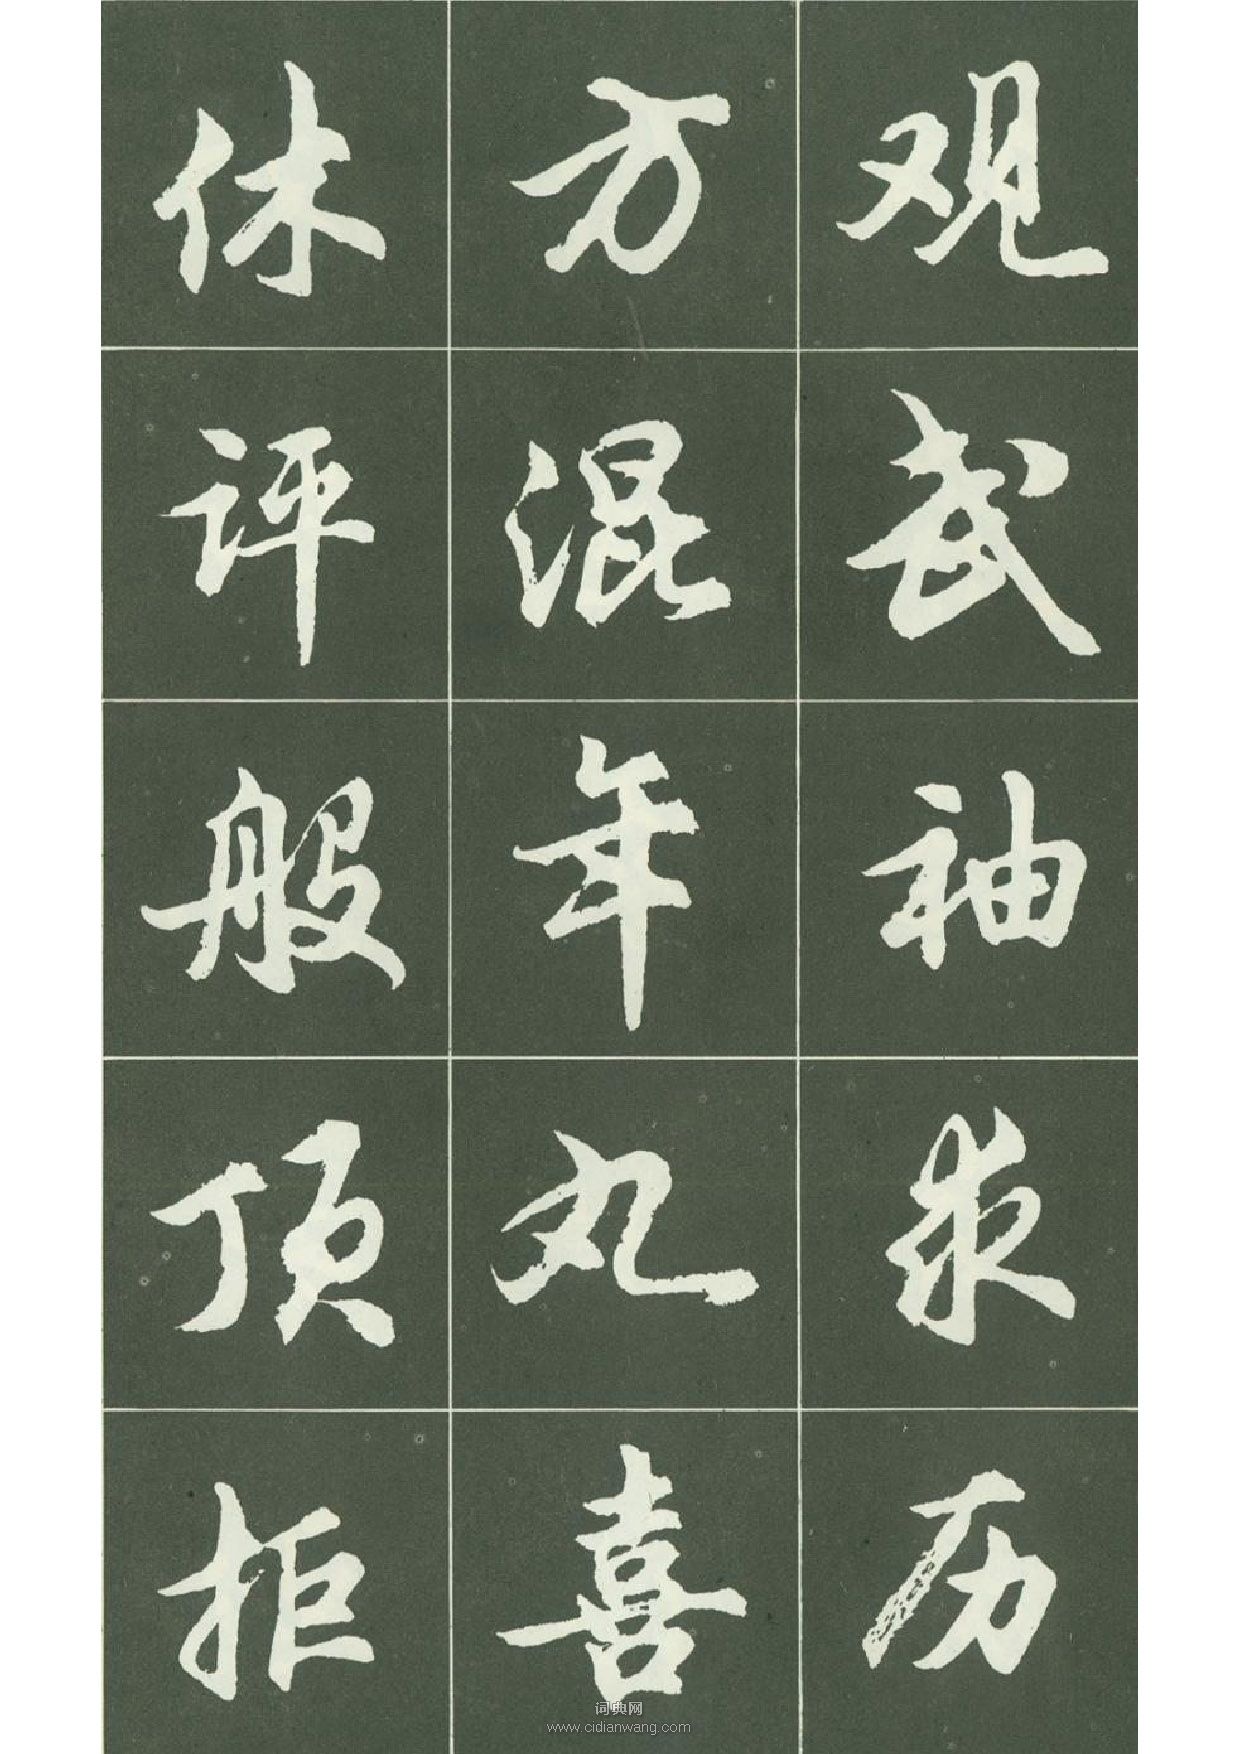 观武袖求历
方混年丸喜
休评般顶拒
词典网
www.cidianwang.com